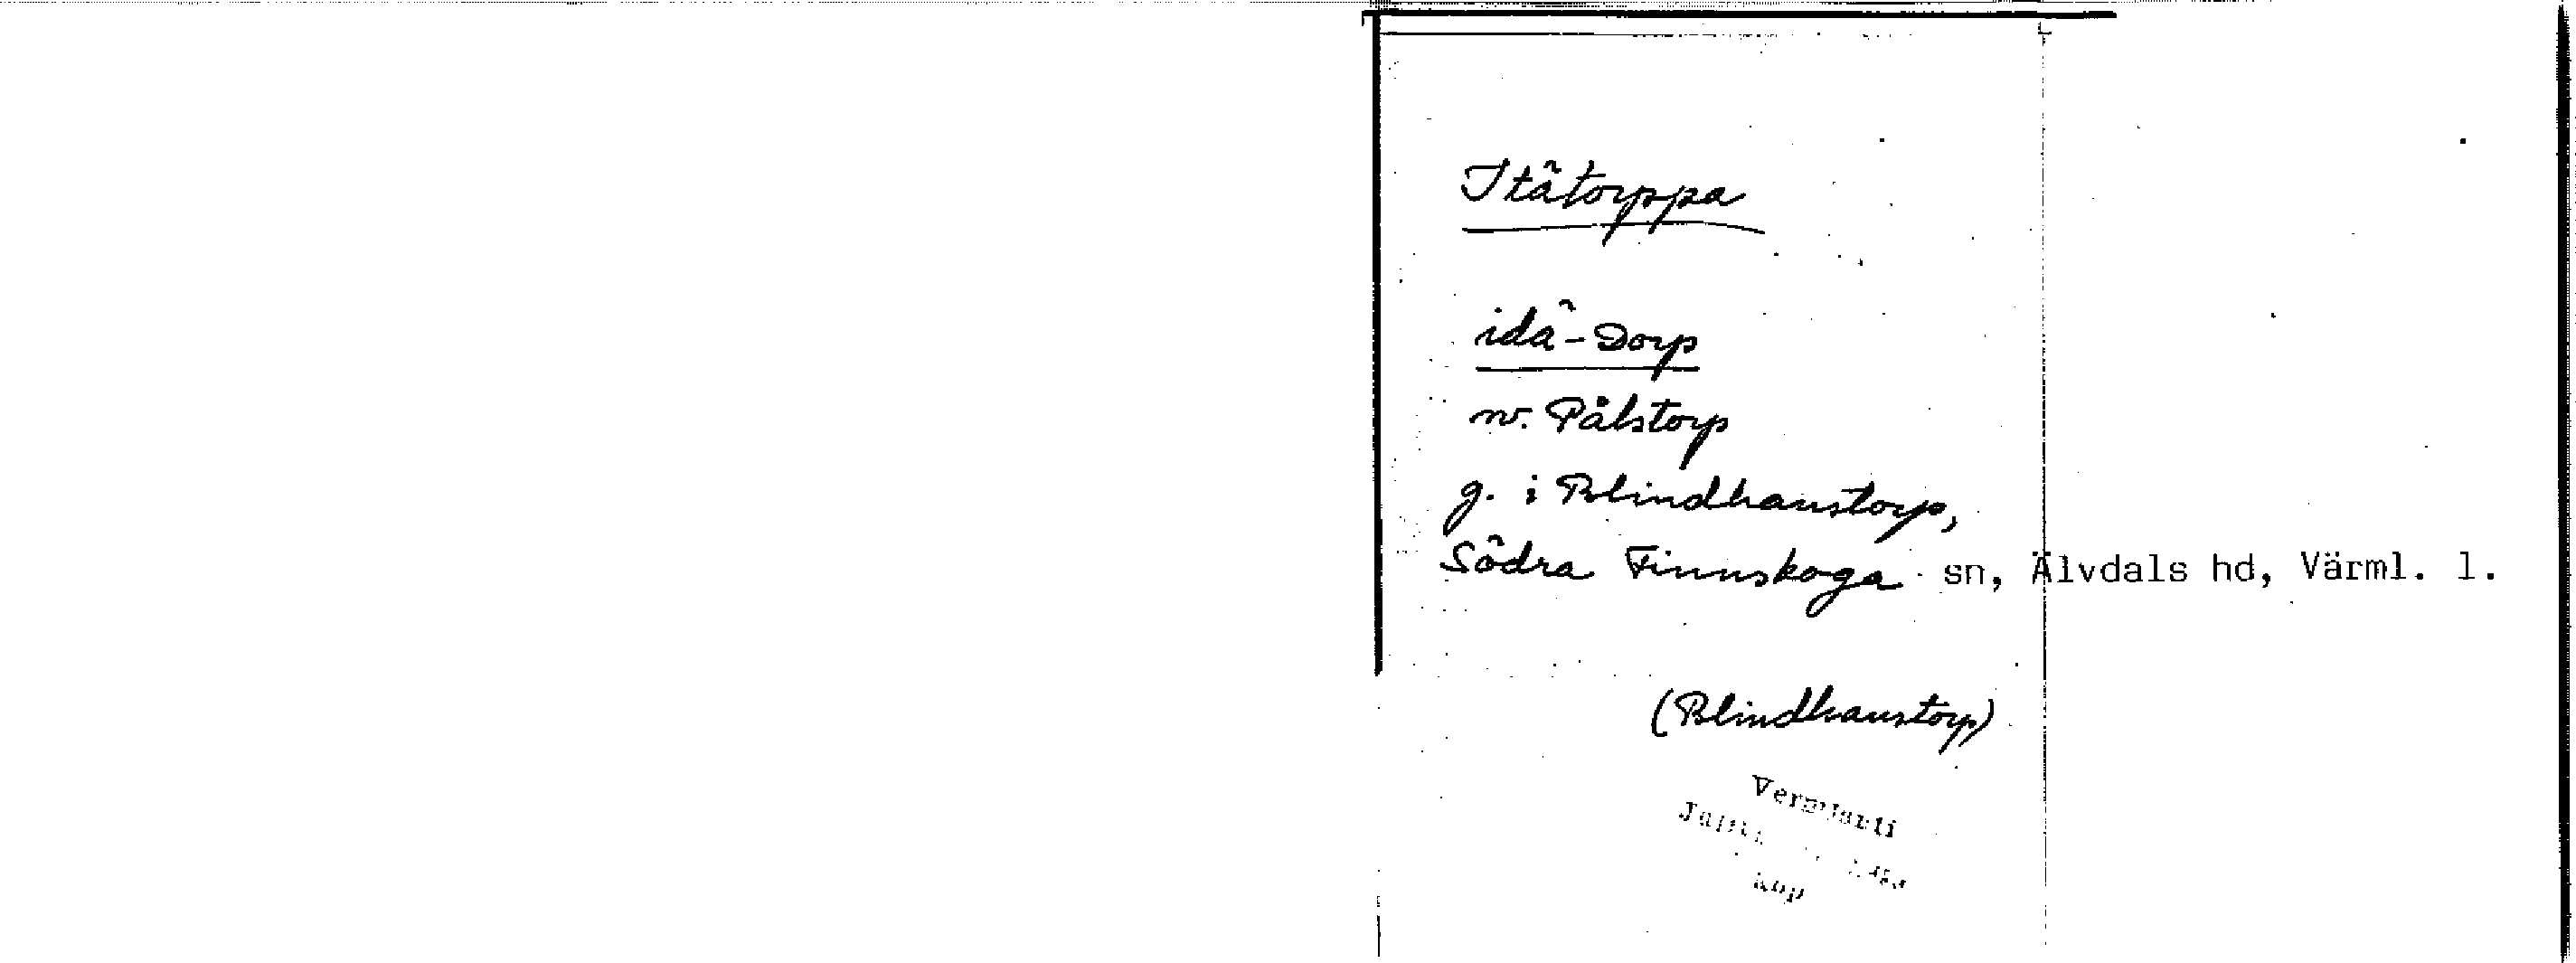 Itätorppa
idä-Dorp
nv. Pålstorp
g. i Blindhanstorp,
Södra Finnskoga sn, Älvdals hd, Värml. l.
(Blindhanstorp)